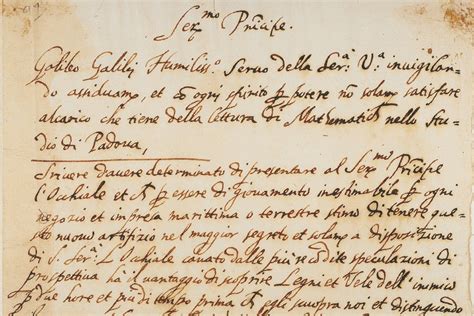 Ser.mo Prīcipe.
Galileo Galilej Humiliss.o Servo della Ser.a V.a invigilan
do assiduam.te, et cō ogni spirito p̱ potere nō solam.te satisfare
alcarico che tiene della lettura di Mathematich nello Stu
dio di Padova,
Scrivere d'avere determinato di presentare al Ser.mo Prīcipe
l'Occhiale et p̱ essere di giovamento inestimabile p̱ ogni
negozio et impresa marittima o terrestre stimo di tenere que
sto nuovo artifizio nel maggior segreto et solam.te a disposizione
di S. Ser.a L'Occhiale cavato dalle più recōdite speculazioni di
prospettiva ha il vantaggio di scoprire Legni et Vele dell'inimico
p̱ due hore et più di tempo prima ch' egli scuopra noi et distinguendo